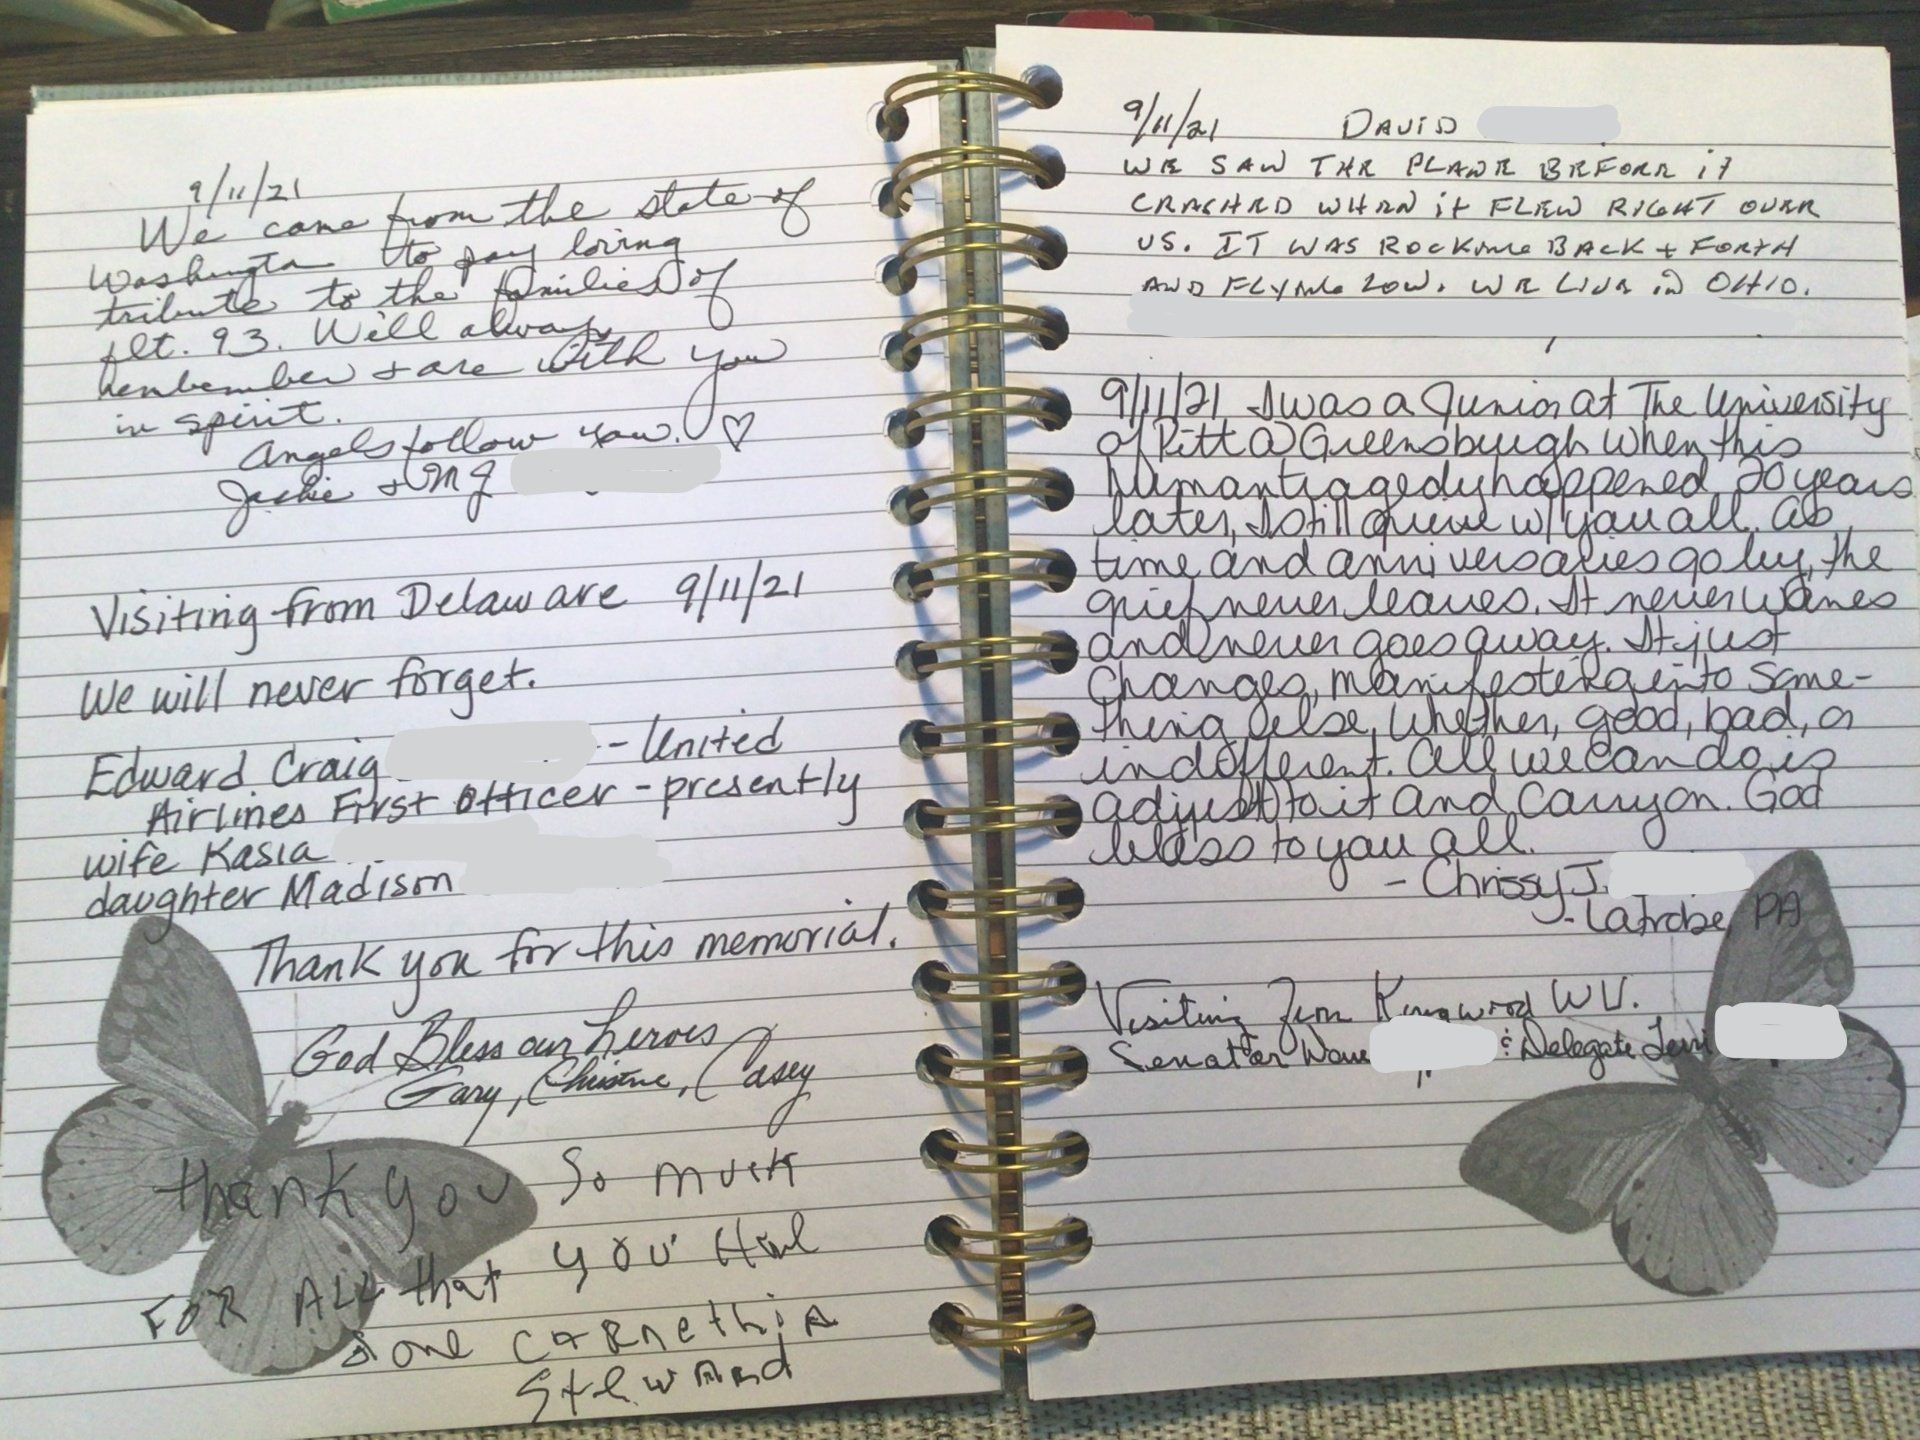 9/11/21
We came from the state of
Washington to pay loving
tribute to the families of
flt. 93. Will always
rembember + are with you
in spirit.
Angels follow you. ♡
Jackie + MJ
Visiting from Delaware 9/11/21
We will never forget.
Edward Craig - United
Airlines First Officer - presently
wife Kasia
daughter Madison
Thank you for this memorial.
God Bless our heroes
Gary, Christine, Casey
thank you So much
FOR ALL that YOU Had
done CARnethia
Steward
9/11/21 DAVID
WE SAW THE PLANE BEFORE it
CRASHED WHEN it FLEW RIGHT OVER
US. IT WAS ROCKING BACK + FORTH
AND FLYING LOW. WE LIVE in OHIO.
9/11/21 I was a Junior at The University
of Pitt @ Greensburgh when this
human tragedy happened. 20 years
later, I still grieve w/ you all. As
time and anniversaries go by, the
grief never leaves. It never wanes
and never goes away. It just
changes, manifesting into some-
thing else, whether, good, bad, or
indifferent. All we can do is
adjust to it and carry on. God
bless to you all.
- Chrissy J.
- Latrobe, PA
Visiting From Kingwood WV.
Senator Dave & Delegate Terri